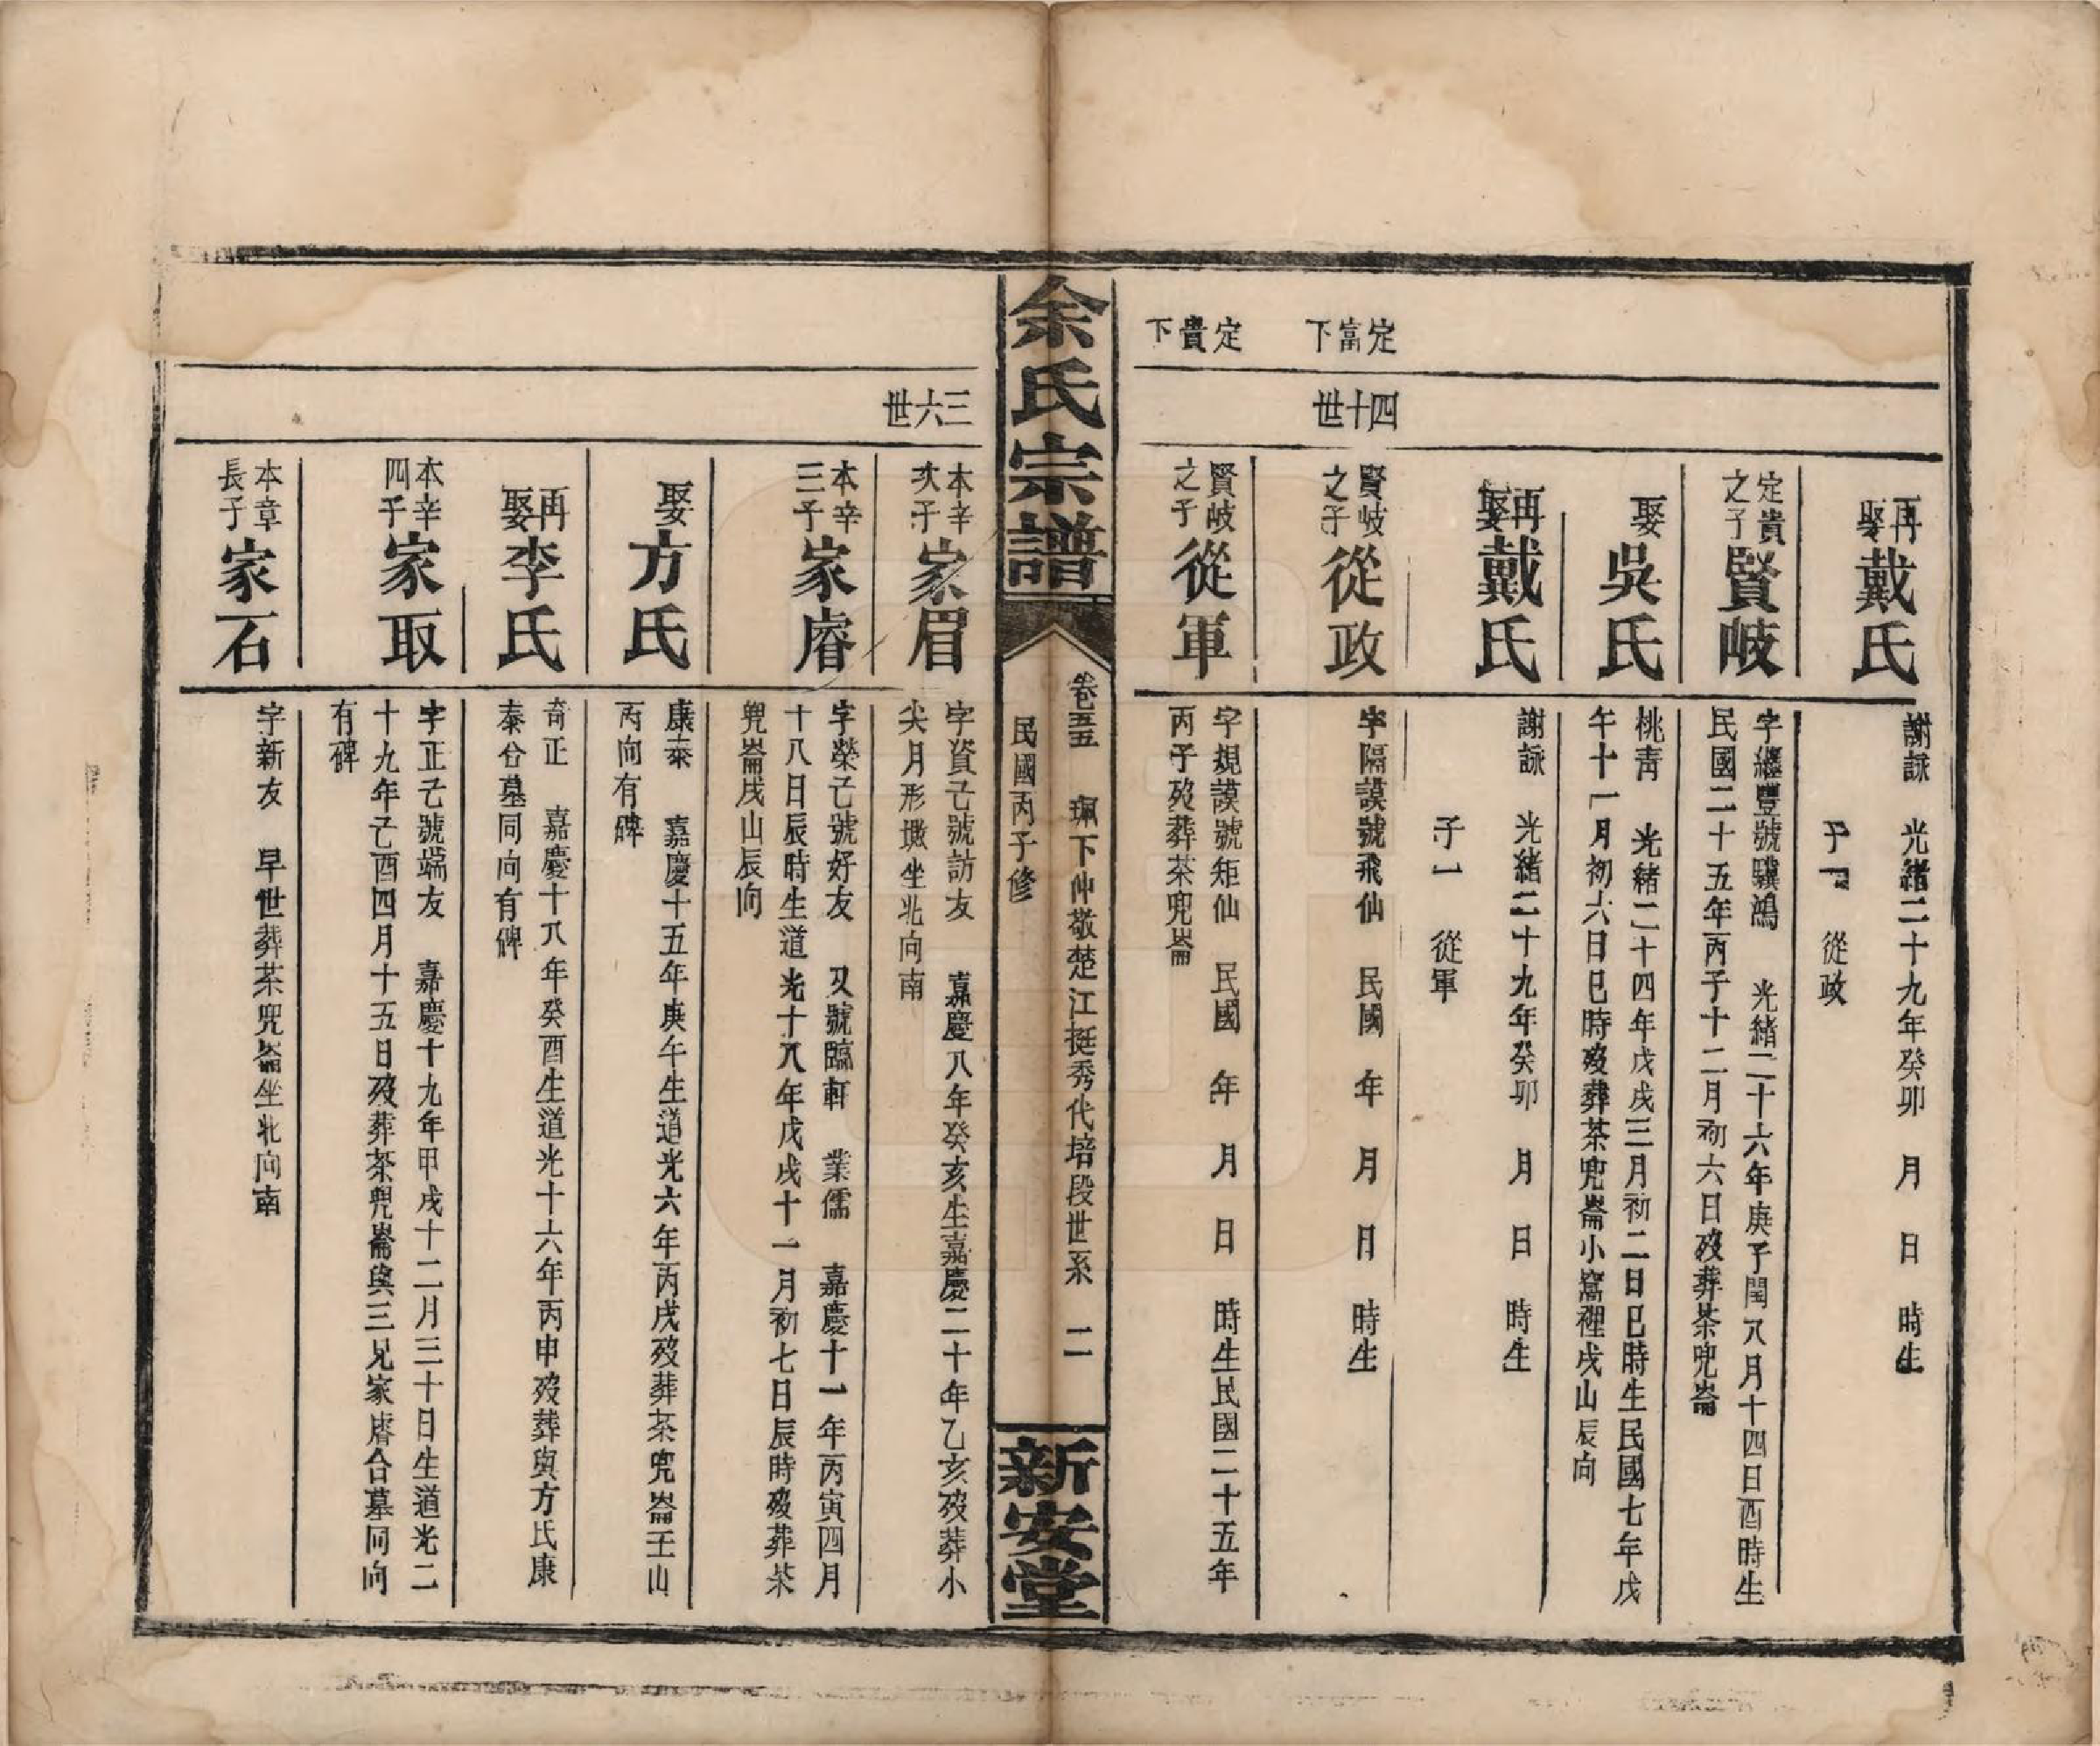 再娶戴氏
謝詠　光緒二十九年癸卯　月　日　時生
子一　從政
定貴之子賢岐
字繼豐號驥鴻　光緒二十六年庚子閏八月十四日酉時生
民國二十五年丙子十二月初六日歿葬茶兜崙
娶吳氏
桃靑　光緒二十四年戊戌三月初二日巳時生民國七年戊
午十一月初六日巳時歿葬茶兜崙小窩裡戌山辰向
再娶戴氏
謝詠　光緒二十九年癸卯　月　日　時生
子一　從軍
定富下
四十世
賢岐之子從政
字隔謨號飛仙　民國　年　月　日　時生
定貴下
賢岐之子從軍
字規謨號矩仙　民國　年　月　日　時生民國二十五年
丙子歿葬茶兜崙
余氏宗譜
卷五五　珮下仲敬楚江挺秀代培段世系　二
民國丙子修
新安堂
三六世
本辛次子家眉
字資己號訪友　嘉慶八年癸亥生嘉慶二十年乙亥歿葬小
尖月形墩坐北向南
本辛三子家𤲞
字榮己號好友　又號臨軒　業儒　嘉慶十一年丙寅四月
十八日辰時生道光十八年戊戌十一月初七日辰時歿葬茶
兜崙戌山辰向
娶方氏
康泰　嘉慶十五年庚午生道光六年丙戌歿葬茶兜崙壬山
丙向有碑
再娶李氏
奇正　嘉慶十八年癸酉生道光十六年丙申歿葬與方氏康
泰仝墓同向有碑
本辛四子家取
字正己號端友　嘉慶十九年甲戌十二月三十日生道光二
十九年己酉四月十五日歿葬茶兜崙與三兄家𤲞合墓同向
有碑
本章長子家石
字新友　早世葬茶兜崙坐北向南